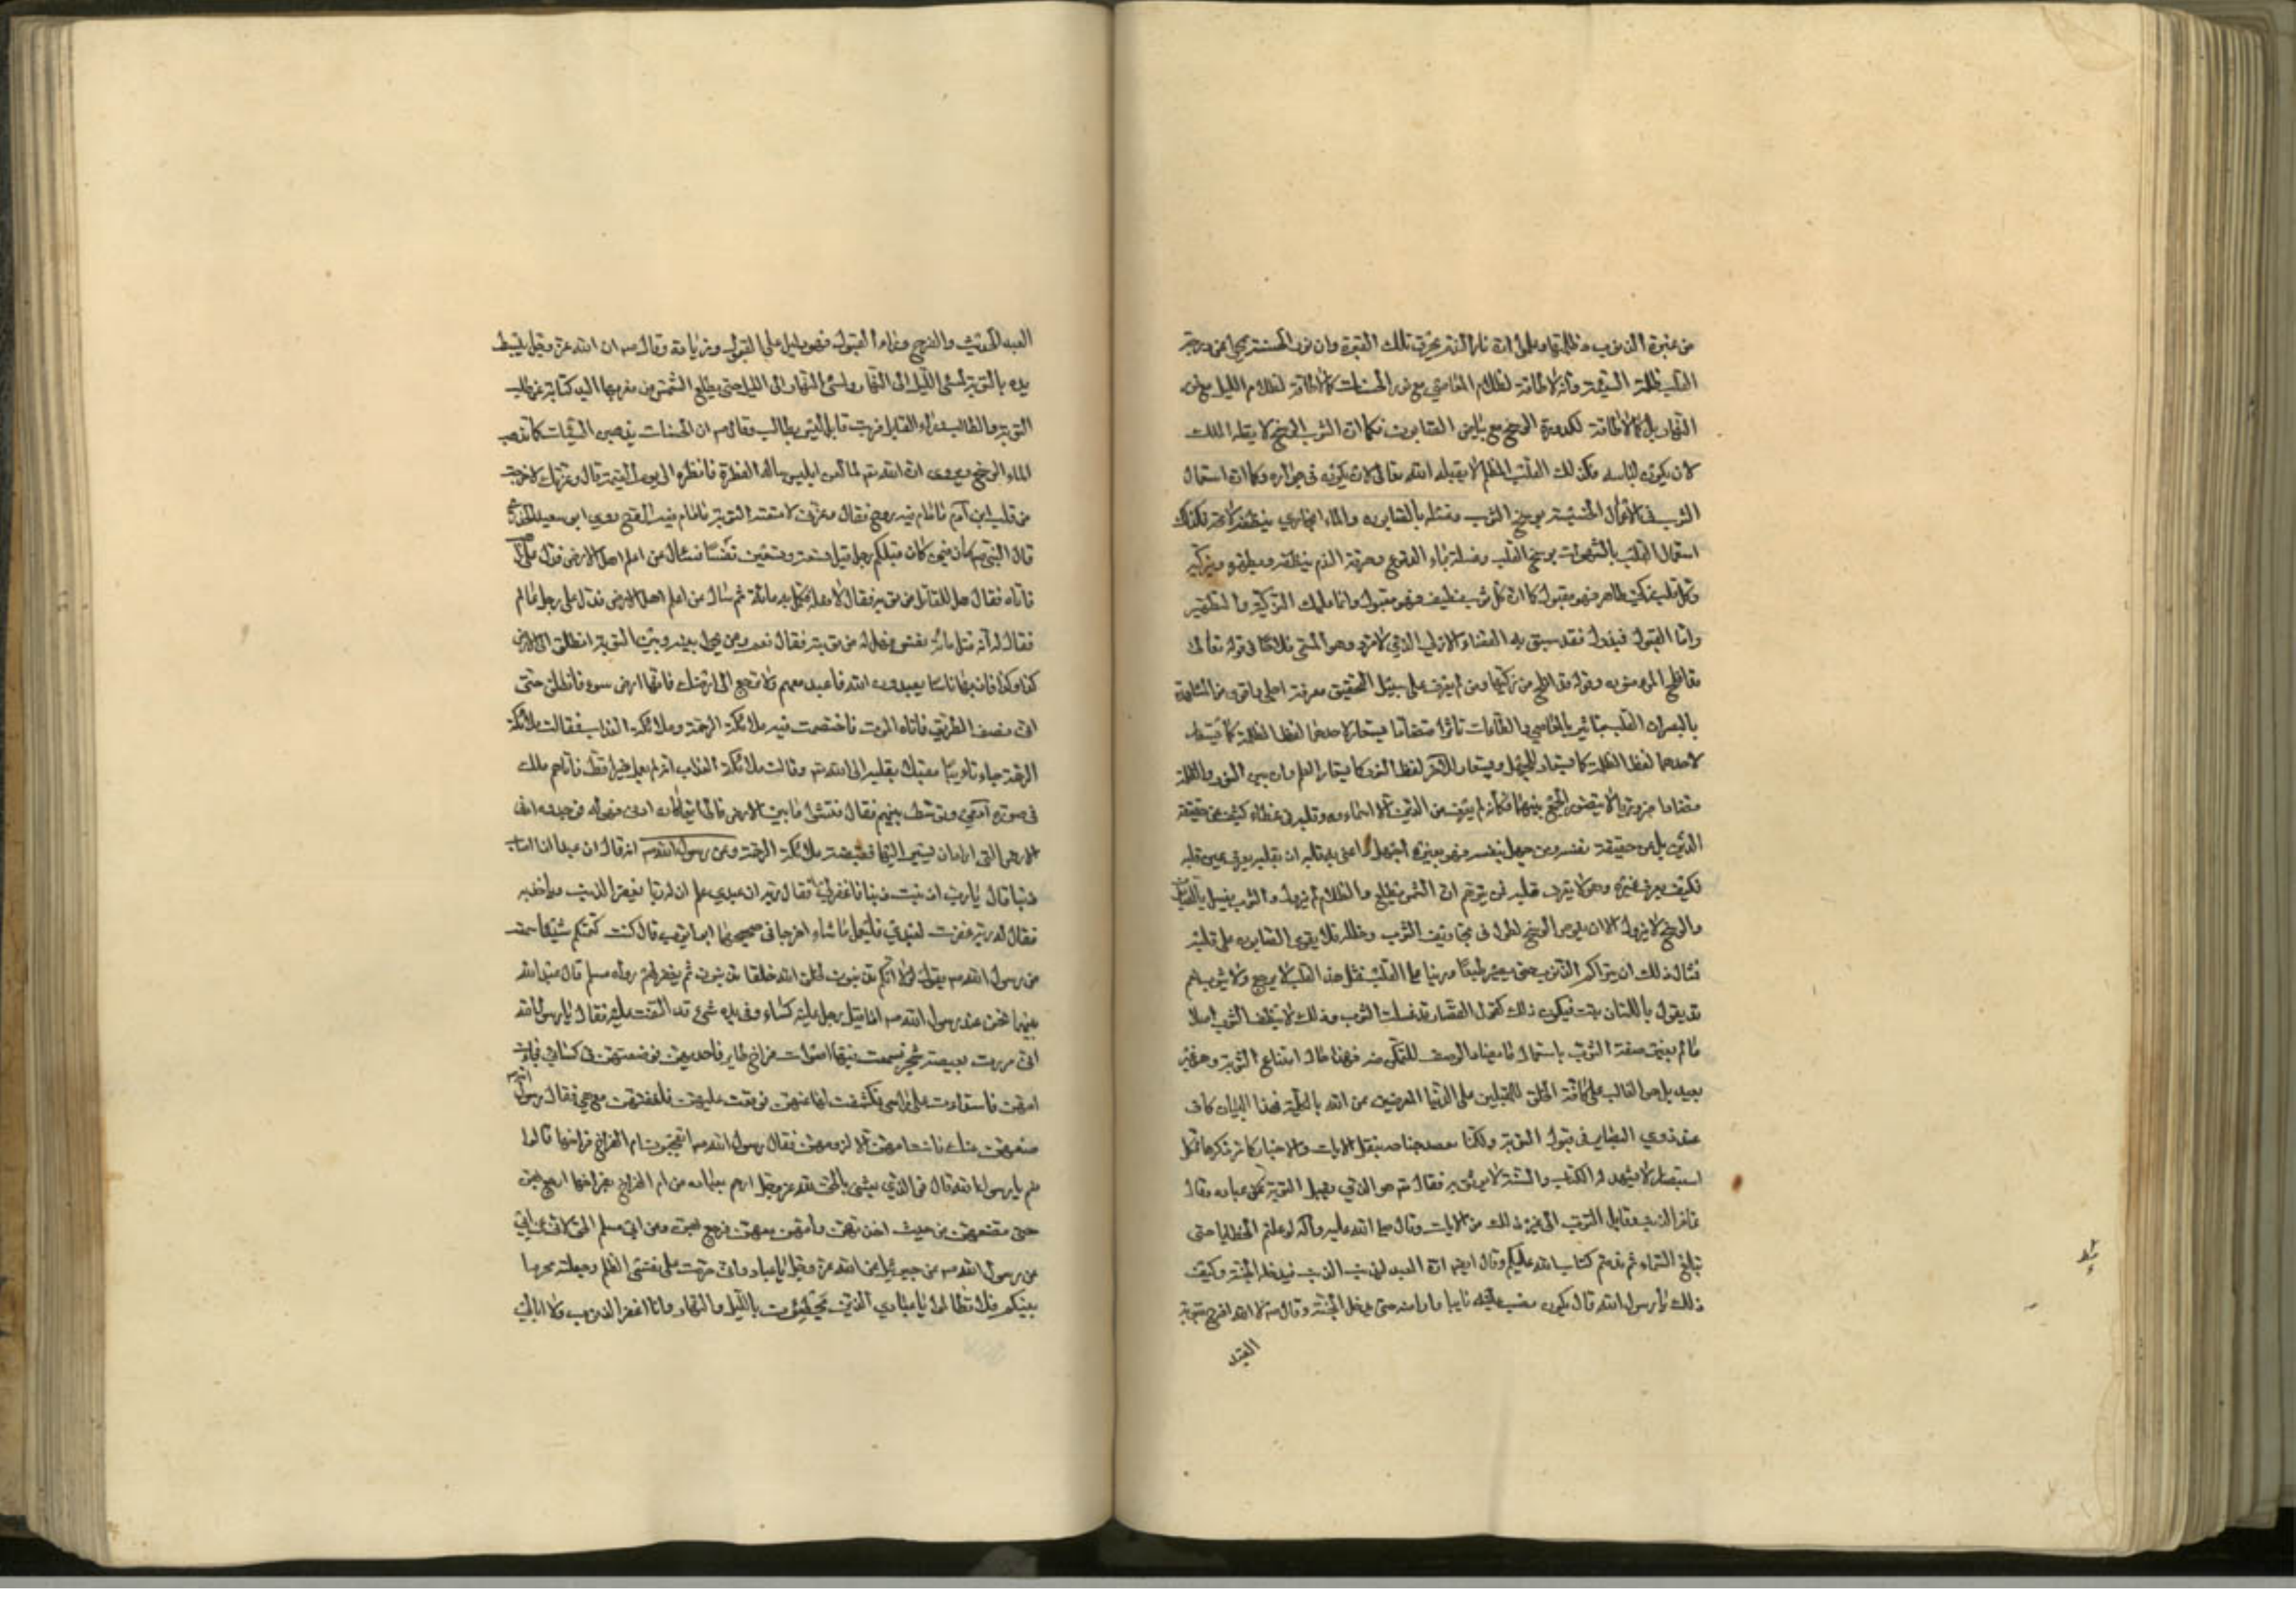 من غبرة الذنوب وظلمتها وعلم ان نار الندم تحرق تلك الغبرة وان نور الحسنة يمحو عن وجه
القلب ظلمة السيئة وانه لا طاقة لظلام المعاصي مع نور الحسنات كما لا طاقة لظلام الليل مع نور
النهار بل كما لا طاقة لكدورة الوسخ مع بياض الصابون فكما ان الثوب الوسخ لا يقبله الملك
لان يكون لباسه فكذلك القلب المظلم لا يقبله الله تعالى لان يكون في جواره وكما ان استعمال
الثوب في الاعمال الخسيسة يوسخ الثوب وغسله بالصابون والماء الحار ينظفه لا محالة فكذلك
استعمال القلب بالشهوات يوسخ القلب وغسله بماء الدموع وحرقة الندم ينظفه ويطهره ويزكيه
وكل قلب زكي طاهر فهو مقبول كما ان كل ثوب نظيف فهو مقبول وانما عليك التزكية والتطهير
واما القبول فمبذول فقد سبق به القضاء الازلي الذي لا مرد له وهو المسمى فلاحا في قوله تعالى
قد افلح المؤمنون وقوله قد افلح من زكيها ومن لم يعرف على سبيل التحقيق معرفة اجلى واقوى من المشاهدة
بالبصر ان القلب يتأثر بالمعاصي والطاعات تأثرا متضادا يستعار لاحدهما لفظ الظلمة كما يستعار
لاحدهما لفظ الظلمة كما يستعار للجهل ويستعار للاخر لفظ النور كما يستعار للعلم وان بين النور والظلمة
تضادا ضروريا لا يتصور الجمع بينهما فكانه لم يتلق من الدين الا اسماءه وقلبه في غطاء كثيف عن حقيقة
الدين بل عن حقيقة نفسه ومن جهل نفسه فهو بغيره اجهل واعني به قلبه ان بقلبه يعرف غير قلبه
فكيف يعرف غيره وهو لا يعرف قلبه فمن يتوهم ان الشمس تطلع والظلام لا يزول والثوب يغسل بالصابون
والوسخ لا يزول الا ان يغوص الوسخ لطول في تجاويف الثوب وخلله فلا يقوى الصابون على قلعه
فمثال ذلك ان يتراكم الذنوب حتى يصير طبعا ورينا على القلب فمثل هذا القلب لا يرجع ولا يتوب نعم
قد يقول باللسان تبت فيكون ذلك كقول القصار قد غسلت الثوب وذلك لا ينظف الثوب اصلا
ما لم يغير صفة الثوب باستعمال ما يضاد الوصف المتمكن منه فهذا حال امتناع التوبة وهو غير
بعيد بل هو الغالب على كافة الخلق المقبلين على الدنيا المعرضين عن الله بالكلية فهذا البيان كاف
عند ذوي البصاير في قبول التوبة ولكنا نعضد جناحه بنقل الايات والاخبار فكل
استبصار لا يشهد له الكتاب والسنة لا يوثق به فقال تعالى هو الذي يقبل التوبة عن عباده وقال
غافر الذنب وقابل التوب الى غير ذلك من الايات وقال صلى الله عليه وآله لو عملتم الخطايا حتى
تبلغ السماء ثم ندمتم لتاب الله عليكم وقال ايضا ان العبد ليذنب الذنب فيدخل به الجنة وكيف
ذلك يا رسول الله قال يكون نصب عينه تايبا فارا منه حتى يدخل الجنة وقال ص لله افرح بتوبة
العبد
العبد الحديث والفرح وراء القبول فهو دليل على القبول وزيادة وقال ص ان الله عز وجل يبسط
يده بالتوبة لمسيء الليل الى النهار ولمسيء النهار الى الليل حتى يطلع الشمس من مغربها اليد كناية عن طلب
التوبة والطالب وراء القابل فرب قابل ليس بطالب وقال ص ان الحسنات يذهبن السيئات كما يذهب
الماء الوسخ ويروى ان الله تم لما لعن ابليس سأله النظرة فانظره الى يوم القيمة قال وعزتك لا خرجت
من قلب ابن آدم ما دام فيه روح فقال وعزتي لا منعته التوبة مادام فيه الروح روى ابو سعيد الخدري
قال النبي ص كان فيمن كان قبلكم رجل قتل تسعة وتسعين نفسا فسأل من اعلم اهل الارض فدل على راهب
فاتاه فقال هل للقاتل من توبة فقال لا فقتله فكمل به مائة ثم سأل من اعلم اهل الارض فدل على رجل عالم
فقال له انه قتل مائة نفس فهل له من توبة فقال نعم ومن يحول بينه وبين التوبة انطلق الى ارض
كذا وكذا فان بها اناسا يعبدون الله فاعبد معهم ولا ترجع الى ارضك فانها ارض سوء فانطلق حتى
اتى نصف الطريق فاتاه الموت فاختصمت فيه ملائكة الرحمة وملائكة العذاب فقالت ملائكة
الرحمة جاء تائبا مقبلا بقلبه الى الله تم وقالت ملائكة العذاب انه لم يعمل خيرا قط فاتاهم ملك
في صورة آدمي وتوسط بينهم فقال قيسوا ما بين الارضين فالى ايتهما كان ادنى فهو له فوجدوه ادنى
الارض التي اراد ان يسير اليها فقبضته ملائكة الرحمة وعن رسول الله ص انه قال ان عبدا اذا اصاب
ذنبا قال يا رب اذنبت ذنبا فاغفر لي فقال ربه ان عبدي علم ان له ربا يغفر الذنب ويأخذ به
فقال له ربه غفرت لعبدي فليعمل ما شاء اخرجا في صحيحيهما ابو ايوب قال كنت كتمتكم شيئا سمعته
من رسول الله ص يقول لولا انكم تذنبون لخلق الله خلقا يذنبون ثم يغفر لهم رواه مسلم قال عبد الله
بينما نحن عند رسول الله ص اذ اقبل رجل عليه كساء وفي يده شيء قد التفت عليه فقال يا رسول الله
اني مررت بغيضة شجر فسمعت فيها اصوات فراخ طاير فاخذتهن فوضعتهن في كسائي فجاءت
امهن فاستدارت على راسي فكشفت لها عنهن فوقعت عليهن فلففتهن معي فقال رسول الله ص
ضعهن عنك فابت امهن الا لزومهن فقال رسول الله ص اتعجبون لام الفراخ فراخها قالوا
نعم يا رسول الله قال فوالذي بعثني بالحق لله عز وجل ارحم بعباده من ام الفراخ بفراخها ارجع بهن
حتى تضعهن من حيث اخذتهن وامهن معهن فرجع بهن وعن ابي مسلم الخولاني عن ابي
عن رسول الله ص عن جبرئيل عن الله عز وجل يا عبادي اني حرمت على نفسي الظلم وجعلته محرما
بينكم فلا تظالموا يا عبادي الذين تخطئون بالليل والنهار وانا اغفر الذنوب ولا ابالي